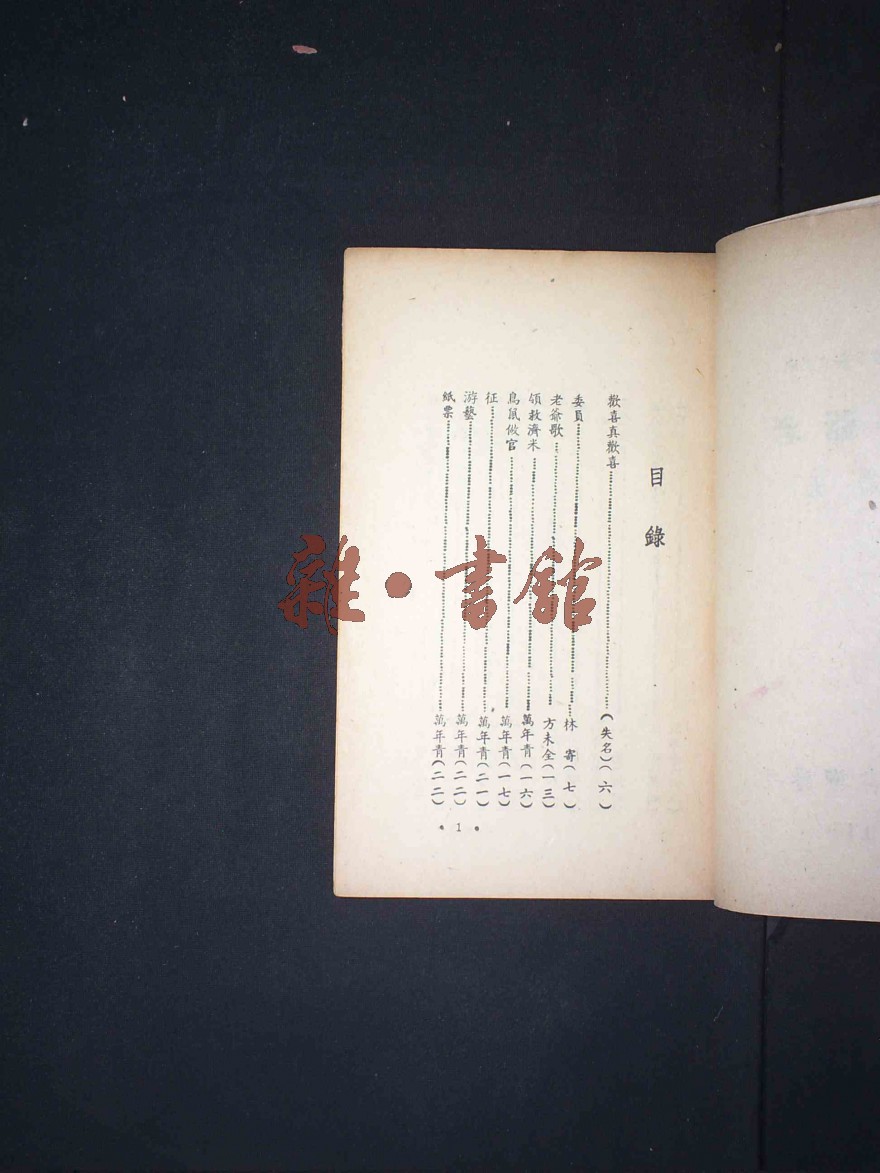 目錄
歡喜真歡喜……(失名)(六)
委員……林寄(七)
老爺歌……方未全(一三)
領救濟米……萬年青(一六)
鳥鼠做官……萬年青(一七)
征……萬年青(二一)
游藝……萬年青(二二)
紙票……萬年青(二二)
• 1 •
雜·書館